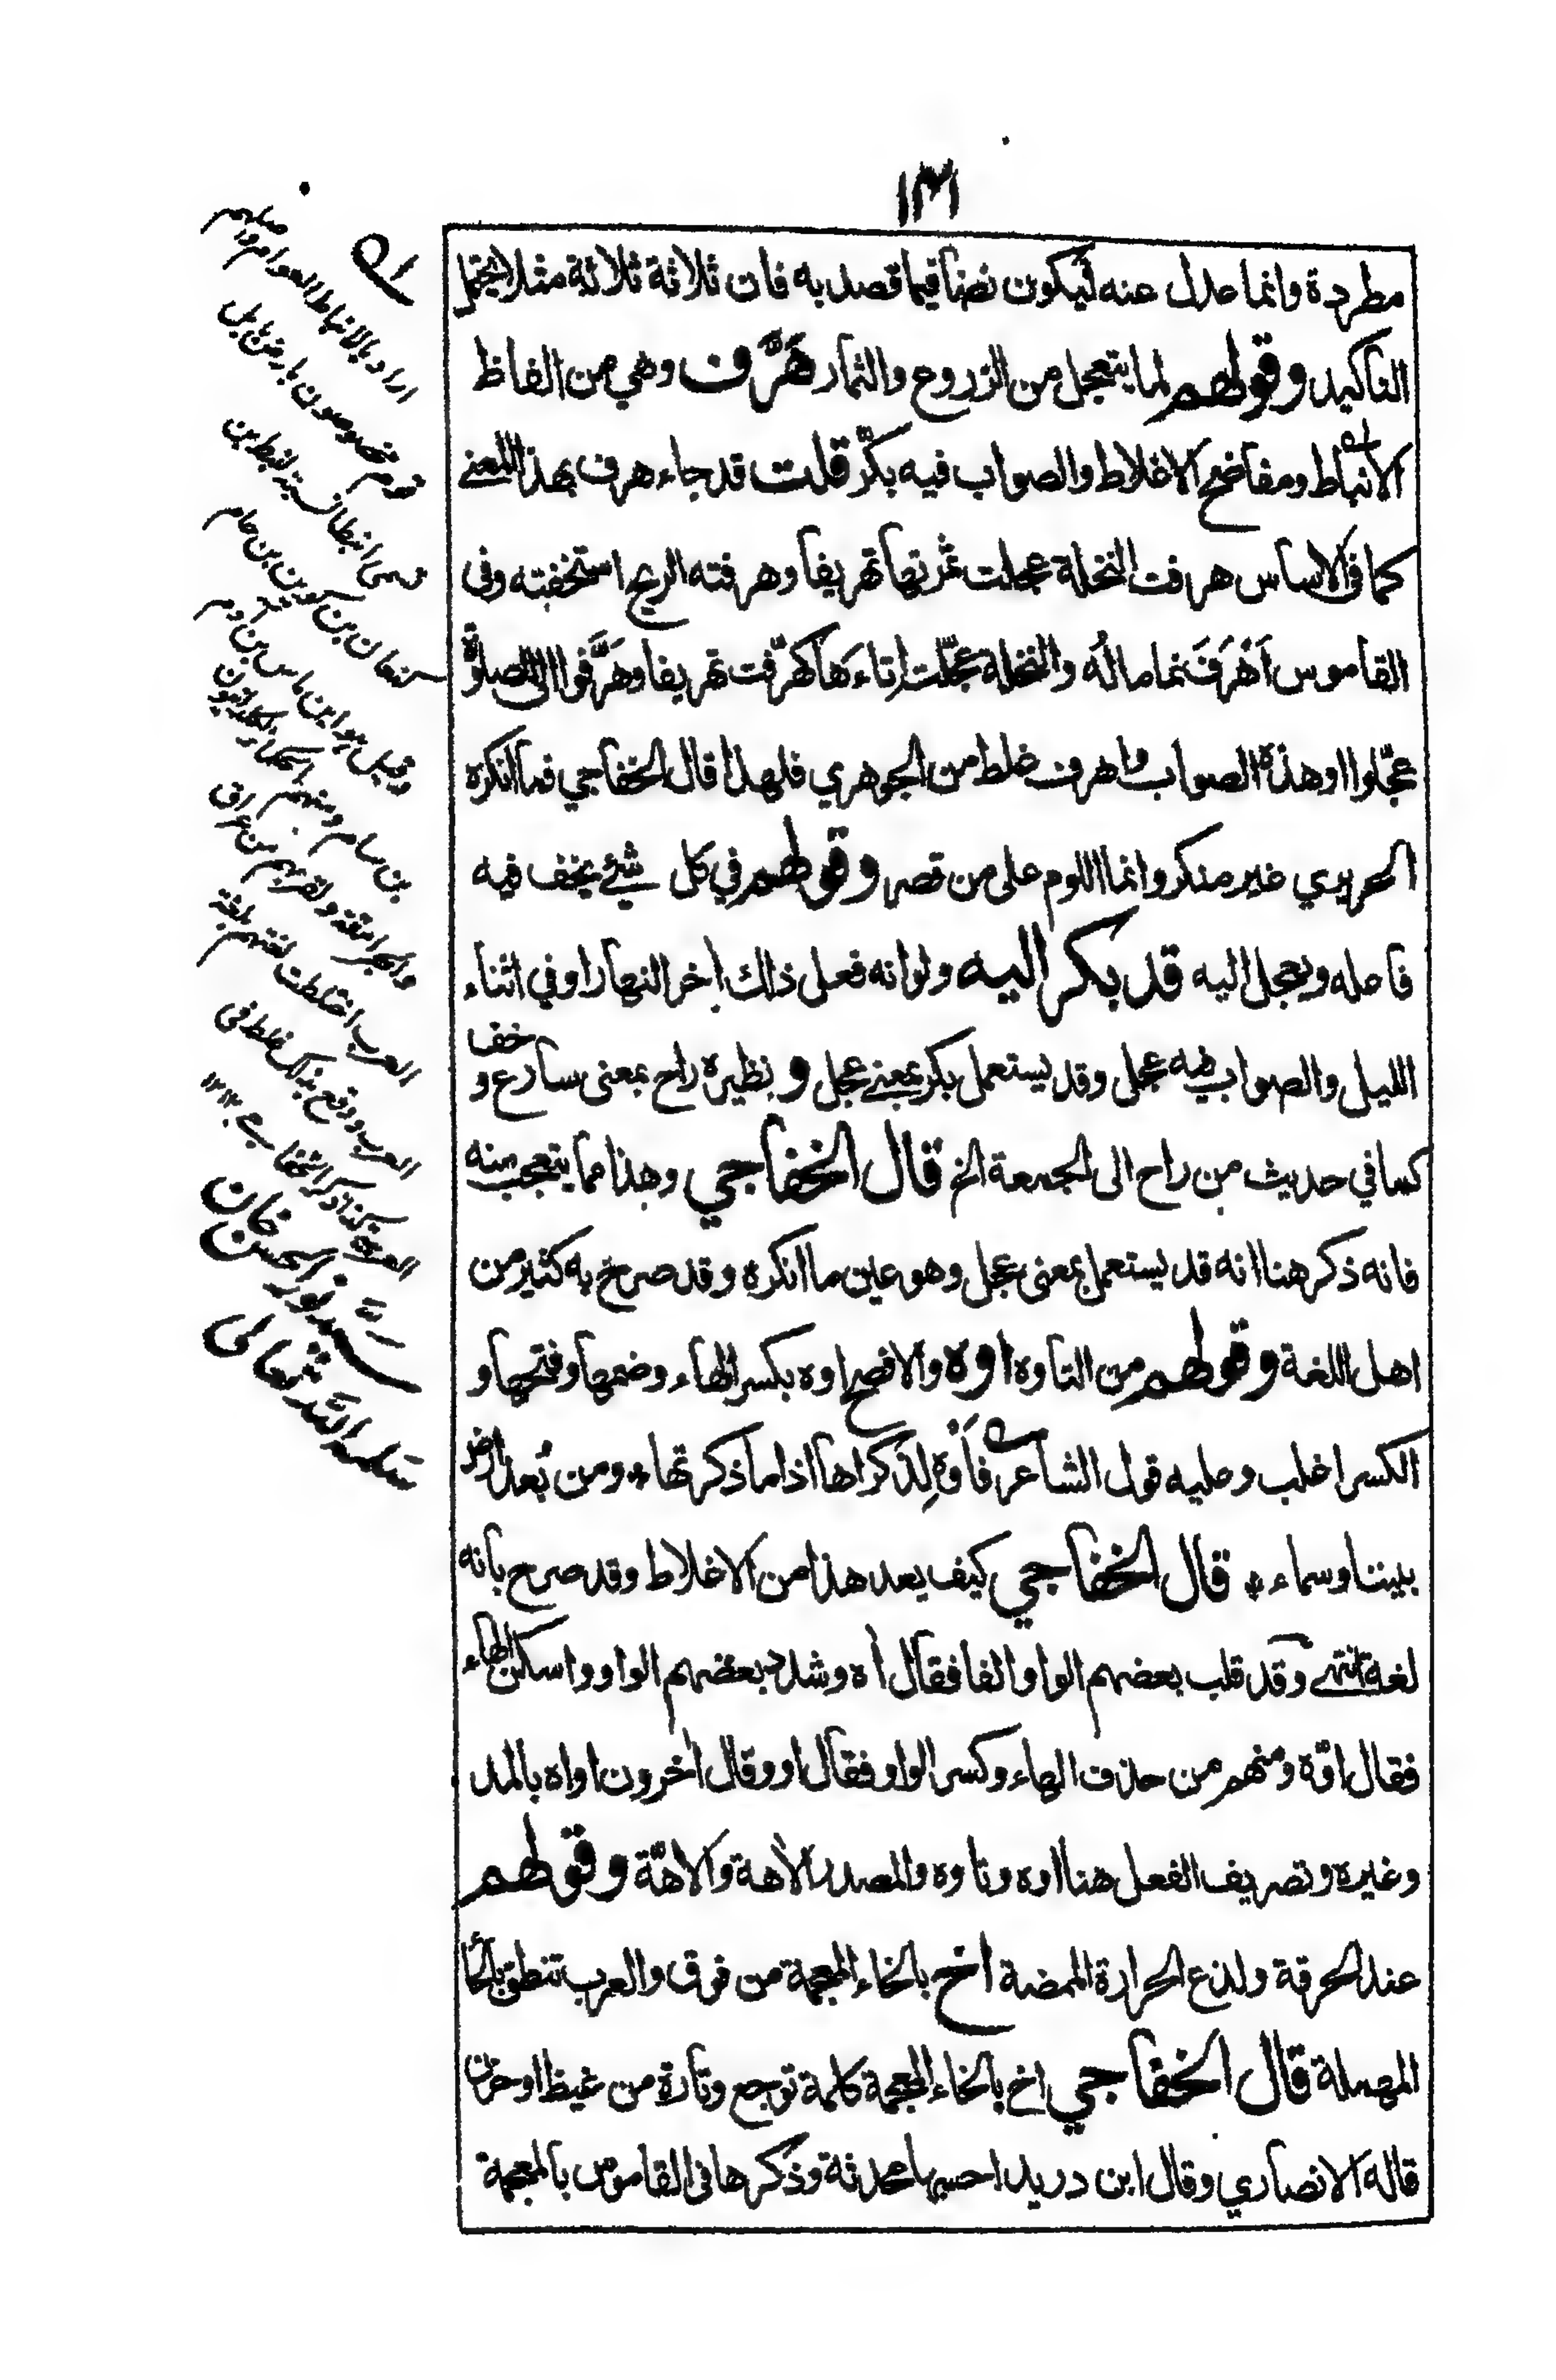 ١٣١
مطردة وانما عدل عنه ليكون نصا فيما قصد به فان ثلاثة ثلاثة مثلا يحتمل
التاكيد وقولهم لما يتعجل من الزروع والثمار هَرَّف وهي من الفاظ
الانباط ومفاضح الاغلاط والصواب فيه بكّر قلت قد جاء هرف بهذا المعنى
كما في الاساس هرفت النخلة عجلت ثمرتها تهريفا وهرفته الريح استخفته وفي
القاموس اَهْرَفَ نما ماله والنخلة عجّلت اِتاءَها كهرّفت تهريفا وهَرَّفوا الى الصلوة
عجّلوا وهذه الصواب واهرف غلط من الجوهري فلهذا قال الخفاجي فما انكره
الحريري غير منكر وانما اللوم على من قصر وقولهم في كل شئ يخف فيه
فاعله ويعجل اليه قد بكر اليه ولو انه فعل ذلك اخر النهار او في اثناء
الليل والصواب فيه عجل وقد يستعمل بكر بمعنى عجل ونظيره راح بمعنى سارع و خف
كما في حديث من راح الى الجمعة الخ قال الخفاجي وهذا مما يتعجب منه
فانه ذكر هنا انه قد يستعمل بمعنى عجل وهو عين ما انكره وقد صرح به كثير من
اهل اللغة وقولهم من التاوه اوه والافصح اوه بكسر الهاء وضمها وفتحها و
الكسر اغلب وعليه قول الشاعر فَاَوْهِ لِذِكراها اذا ما ذكرتها ٭ ومن بُعد ارض
بيننا وسماء ٭ قال الخفاجي كيف يعد هذا من الاغلاط وقد صرح بانه
لغة انتهى وقد قلب بعضهم الواو الفا فقال اٰه وشدد بعضهم الواو واسكن الهاء
فقال اوّه ومنهم من حذف الهاء وكسر الواو فقال او وقال اخرون اواه بالمد
وغيره وتصريف الفعل هنا اوه وتاوه والمصدر الاهة والاهّة وقولهم
عند الحرقة ولذع الحرارة الممضة اخ بالخاء المعجمة من فوق والعرب تنطق بالحاء
المهملة قال الخفاجي اخ بالخاء المعجمة كلمة توجع وتارة من غيظ او حزن
قاله الانصاري وقال ابن دريد احسبها محدثة وذكرها في القاموس بالمعجمة
اراد بالانباط العوام واصلهم
قوم مخصوصون بارض بابل
العرب اختلطت لغتهم بلغة
العرب ووقع بذلك غلط في
سيد نور الحسن خان
سلمه الله تعالى